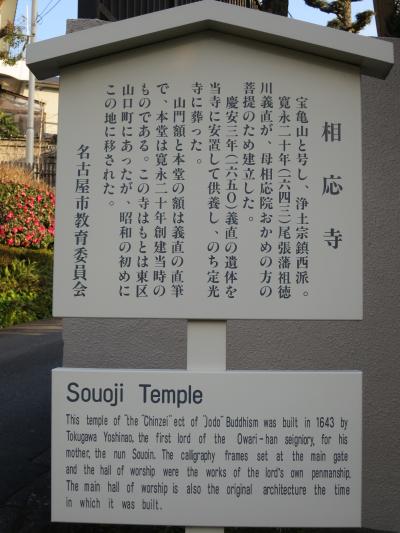 相応寺
宝亀山と号し、浄土宗鎮西派。
寛永二十年(一六四三)尾張藩祖徳
川義直が、母相応院おかめの方の
菩提のため建立した。
慶安三年(一六五〇)義直の遺体を
当寺に安置して供養し、のち定光
寺に葬った。
山門額と本堂の額は義直の直筆
で、本堂は寛永二十年創建当時の
ものである。この寺はもとは東区
山口町にあったが、昭和の初めに
この地に移された。
名古屋市教育委員会
Souoji Temple
This temple of "the "Chinzei" ect of "Jodo" Buddhism was built in 1643 by
Tokugawa Yoshinao, the first lord of the Owari-han seigniory, for his
mother, the nun Souoin. The calligraphy frames set at the main gate
and the hall of worship were the works of the lord's own penmanship.
The main hall of worship is also the original architecture the time
in which it was built.